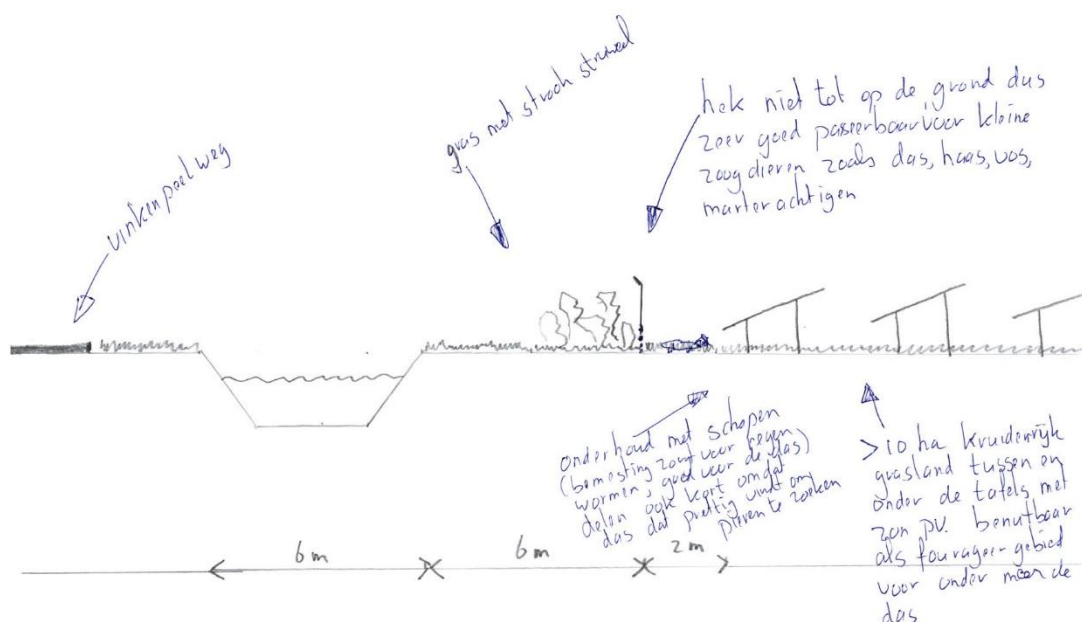 vinkenpeelweg
gras met strook struweel
hek niet tot op de grond dus
zeer goed passeerbaar voor kleine
zoogdieren zoals das, haas, vos,
marterachtigen
onderhoud met schapen
(bemesting zorgt voor regen
wormen, goed voor de das)
delen ook kort omdat
das dat prettig vindt om
pieren te zoeken
> 10 ha kruidenrijk
grasland tussen en
onder de tafels met
zon pv. benutbaar
als fourageergebied
voor onder meer de
das
6 m
6 m
2 m